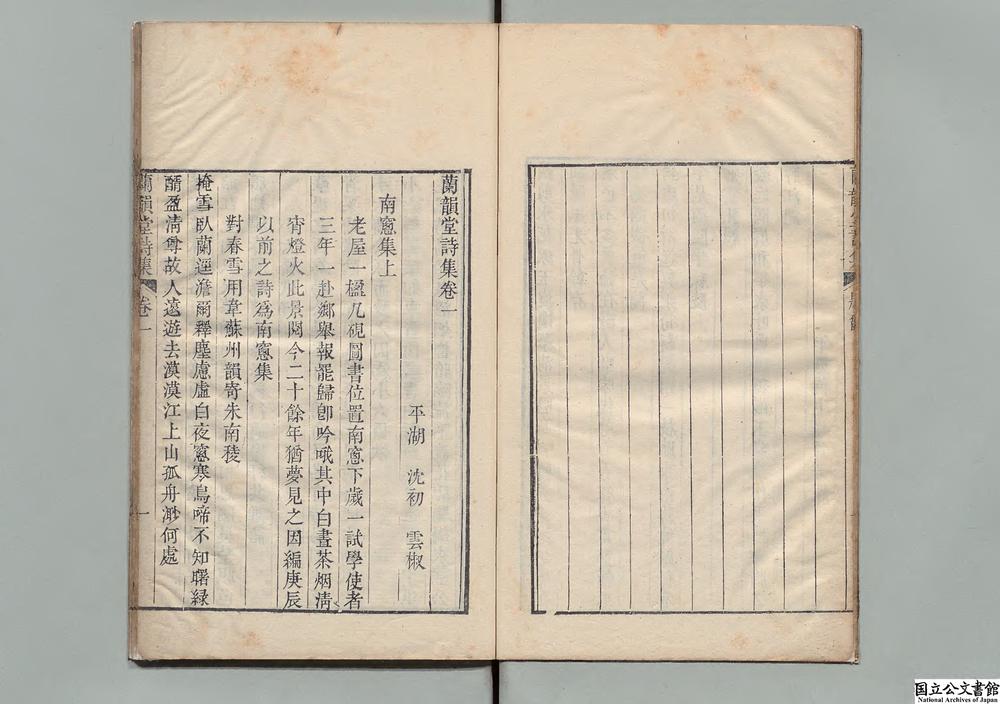 蘭韻堂詩集卷一
平湖 沈初 雲椒
南窻集上
老屋一楹几硯圖書位置南窻下歲一試學使者
三年一赴鄉舉報罷歸卽吟哦其中白晝茶烟淸
宵燈火此景閱今二十餘年猶夢見之因編庚辰
以前之詩爲南窻集
對春雪用韋蘇州韻寄朱南稜
掩雪臥蘭逕澹爾釋塵慮虛白夜窻寒鳥啼不知曙綠
醑盈淸尊故人遠遊去漠漠江上山孤舟渺何處
蘭韻堂詩集 卷一 一
国立公文書館
National Archives of Japan